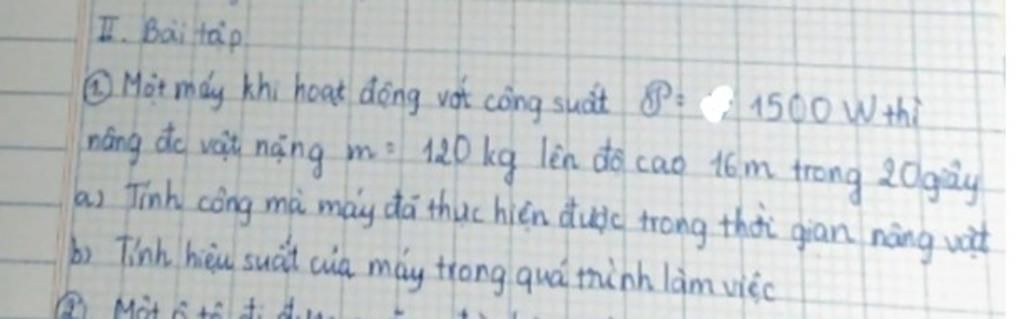 II. Bài tập
① Một máy khi hoạt động với công suất 𝒫 = 1500 W thì
nâng đc vật nặng m = 120 kg lên độ cao 16m trong 20 giây
a) Tính công mà máy đã thực hiện được trong thời gian nâng vật
b) Tính hiệu suất của máy trong quá trình làm việc
② Một ô tô đi